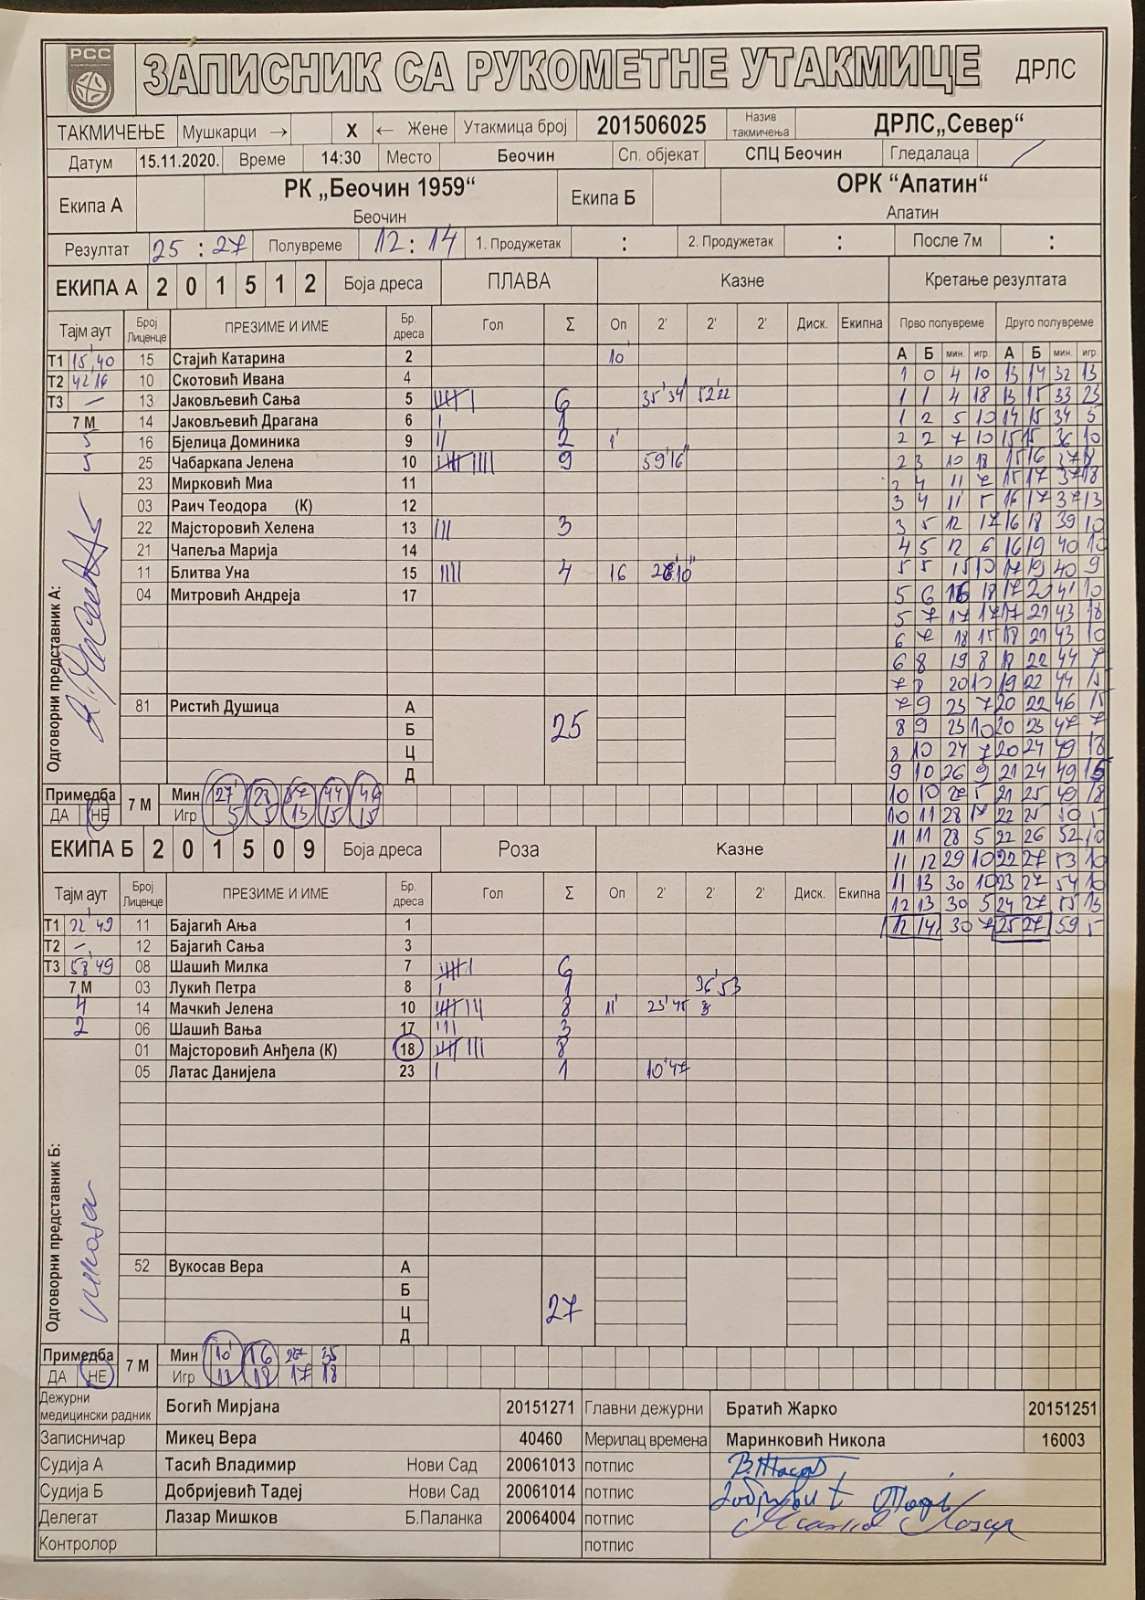 РСС
ЗАПИСНИК СА РУКОМЕТНЕ УТАКМИЦЕ ДРЛС
ТАКМИЧЕЊЕ Мушкарци → X ← Жене Утакмица број 201506025 Назив такмичења ДРЛС„Север“
Датум 15.11.2020. Време 14:30 Место Беочин Сп. објекат СПЦ Беочин Гледалаца /
Екипа А РК „Беочин 1959“ Екипа Б ОРК “Апатин“
Беочин Апатин
Резултат 25 : 27 Полувреме 12 : 14 1. Продужетак : 2. Продужетак : После 7м :
ЕКИПА А 2 0 1 5 1 2 Боја дреса ПЛАВА Казне Кретање резултата
Тајм аут Број Лиценце ПРЕЗИМЕ И ИМЕ Бр. дреса Гол Σ Оп 2' 2' 2' Диск. Екипна Прво полувреме Друго полувреме
А Б мин. игр. А Б мин. игр
Т1 15,40 15 Стајић Катарина 2 10'
Т2 42 16 10 Скотовић Ивана 4
Т3 – 13 Јаковљевић Сања 5 6 35'34 52'22
7 М 14 Јаковљевић Драгана 6 1
5 16 Бјелица Доминика 9 2 1'
5 25 Чабаркапа Јелена 10 9 59'16
23 Мирковић Миа 11
03 Раич Теодора (К) 12
22 Мајсторовић Хелена 13 3
21 Чапеља Марија 14
11 Блитва Уна 15 4 16
04 Митровић Андреја 17
Одговорни представник А:
81 Ристић Душица А
Б 25
Ц
Д
1 0 4 10 13 14 32 13
1 1 4 18 13 15 33 23
1 2 5 10 14 15 34 5
2 2 7 10 15 15 36 10
2 3 10 18 15 16 37 18
2 4 11 7 15 17 37 18
3 4 11 5 16 17 37 13
3 5 12 17 16 18 39 10
4 5 12 6 16 19 40 10
5 5 15 10 17 19 40 9
5 6 16 18 17 20 41 10
5 7 17 17 17 21 43 18
6 7 18 15 18 21 43 10
6 8 19 8 18 22 44 7
7 8 20 10 19 22 44 15
7 9 23 7 20 22 46 15
8 9 23 10 20 23 47 7
8 10 24 7 20 24 49 18
9 10 26 9 21 24 49 15
10 10 27 5 21 25 49 18
10 11 28 17 22 25 50 5
11 11 28 5 22 26 52 10
11 12 29 10 22 27 53 10
11 13 30 10 23 27 54 10
12 13 30 5 24 27 55 13
12 14 30 7 25 27 59 5
Примедба 7 М Мин 27' 23 37 44 46
ДА НЕ Игр 5 5 13 15 15
ЕКИПА Б 2 0 1 5 0 9 Боја дреса Роза Казне
Тајм аут Број Лиценце ПРЕЗИМЕ И ИМЕ Бр. дреса Гол Σ Оп 2' 2' 2' Диск. Екипна
Т1 22 49 11 Бајагић Ања 1
Т2 – 12 Бајагић Сања 3
Т3 58'49 08 Шашић Милка 7 6
7 М 03 Лукић Петра 8 1 36'53
4 14 Мачкић Јелена 10 8 11' 23'45
2 06 Шашић Вања 17 3
01 Мајсторовић Анђела (К) 18 8
05 Латас Данијела 23 1 10'47
Одговорни представник Б:
52 Вукосав Вера А
Б
Ц 27
Д
Примедба 7 М Мин 10' 16 35
ДА НЕ Игр 18 17 18
Дежурни медицински радник Богић Мирјана 20151271 Главни дежурни Братић Жарко 20151251
Записничар Микец Вера 40460 Мерилац времена Маринковић Никола 16003
Судија А Тасић Владимир Нови Сад 20061013 потпис
Судија Б Добријевић Тадеј Нови Сад 20061014 потпис
Делегат Лазар Мишков Б.Паланка 20064004 потпис
Контролор потпис